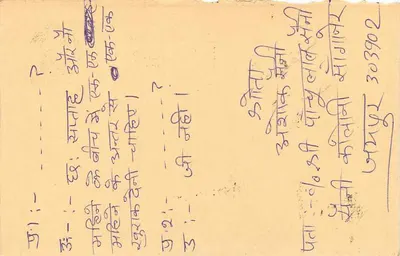 प्र॰ १:- ------?
उ॰-:- छः सप्ताह और नौ
महिने के बीच में एक-एक
महिने के अन्तर से एक-एक
खुराक देनी चाहिए।
प्र॰ २:- ------?
उ :- जी नहीं।
श्रोता
अशोक सैनी
पता :- % श्री पाँचू लाल सैनी
सैनी कोलोनी सांगानेर
जयपुर 303902